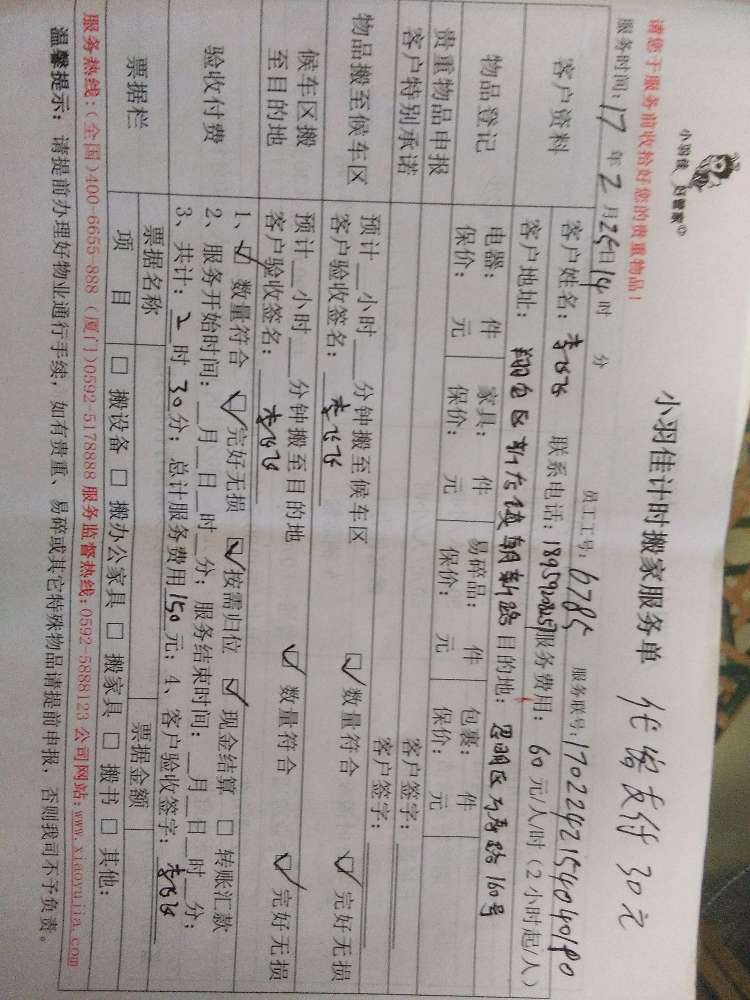 小羽佳 好管家
小羽佳计时搬家服务单 代客支付30元
请您于服务前收拾好您的贵重物品!
服务时间:17年2月25日14时 分 员工工号:6785 服务联号:170224215404080
客户资料 客户姓名: 联系电话: 服务费用:60元/人/时(2小时起/人)
客户地址: 目的地:思明区 路160号
物品登记 电器: 件 家具: 件 易碎品: 件 包裹: 件
保价: 元 保价: 元 保价: 元 保价: 元
贵重物品申报 客户签字:
客户特别承诺 客户签字:
物品搬至候车区 预计__小时__分钟搬至候车区 ☑数量符合 ☑完好无损
客户验收签名:
候车区搬至目的地 预计__小时__分钟搬至目的地 ☑数量符合 ☑完好无损
客户验收签名:
验收付费 1、☑数量符合 ☑完好无损 ☑按需归位 ☑现金结算 □转账汇款
2、服务开始时间:__月__日__时__分;服务结束时间:__月__日__时__分;
3、共计:2时30分;总计服务费用150元;4、客户验收签字:
票据栏 票据名称 票据金额
项 目 □搬设备 □搬办公家具 □搬家具 □搬书 □其他:
服务热线:(全国)400-6655-888 (厦门)0592-5178888 服务监督热线:0592-5888123 公司网站:www.xiaoyujia.com
温馨提示: 请提前办理好物业通行手续,如有贵重、易碎或其它特殊物品请提前申报,否则我司不予负责。